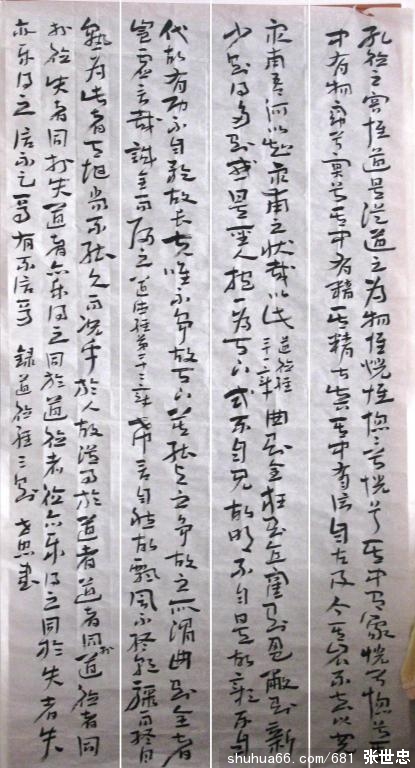 孔德之容惟道是從道之为物惟恍惟惚惚兮恍兮其中有象恍兮惚兮其
中有物窈兮冥兮其中有精其精甚真其中有信自古及今其名不去以閱
衆甫吾何以知衆甫之状哉以此 道德经二十一章 曲则全枉则直窪则盈敝则新
少则得多则惑是以圣人抱一为天下式不自见故明不自是故彰不自
伐故有功不自矜故长夫唯不争故天下莫能与之争故之所謂曲则全者
豈虚言哉誠全而归之 道德经第二十二章 希言自然故飘风不终朝骤雨不终日
孰为此者天地尚不能久而况乎於人故從事於道者道者同於道德者同
於德失者同於失道者亦乐得之同於道德者德亦乐得之同於失者失
亦乐得之信不足焉有不信焉 録道德经三则 世忠書
shuhua66.com/681 张世忠